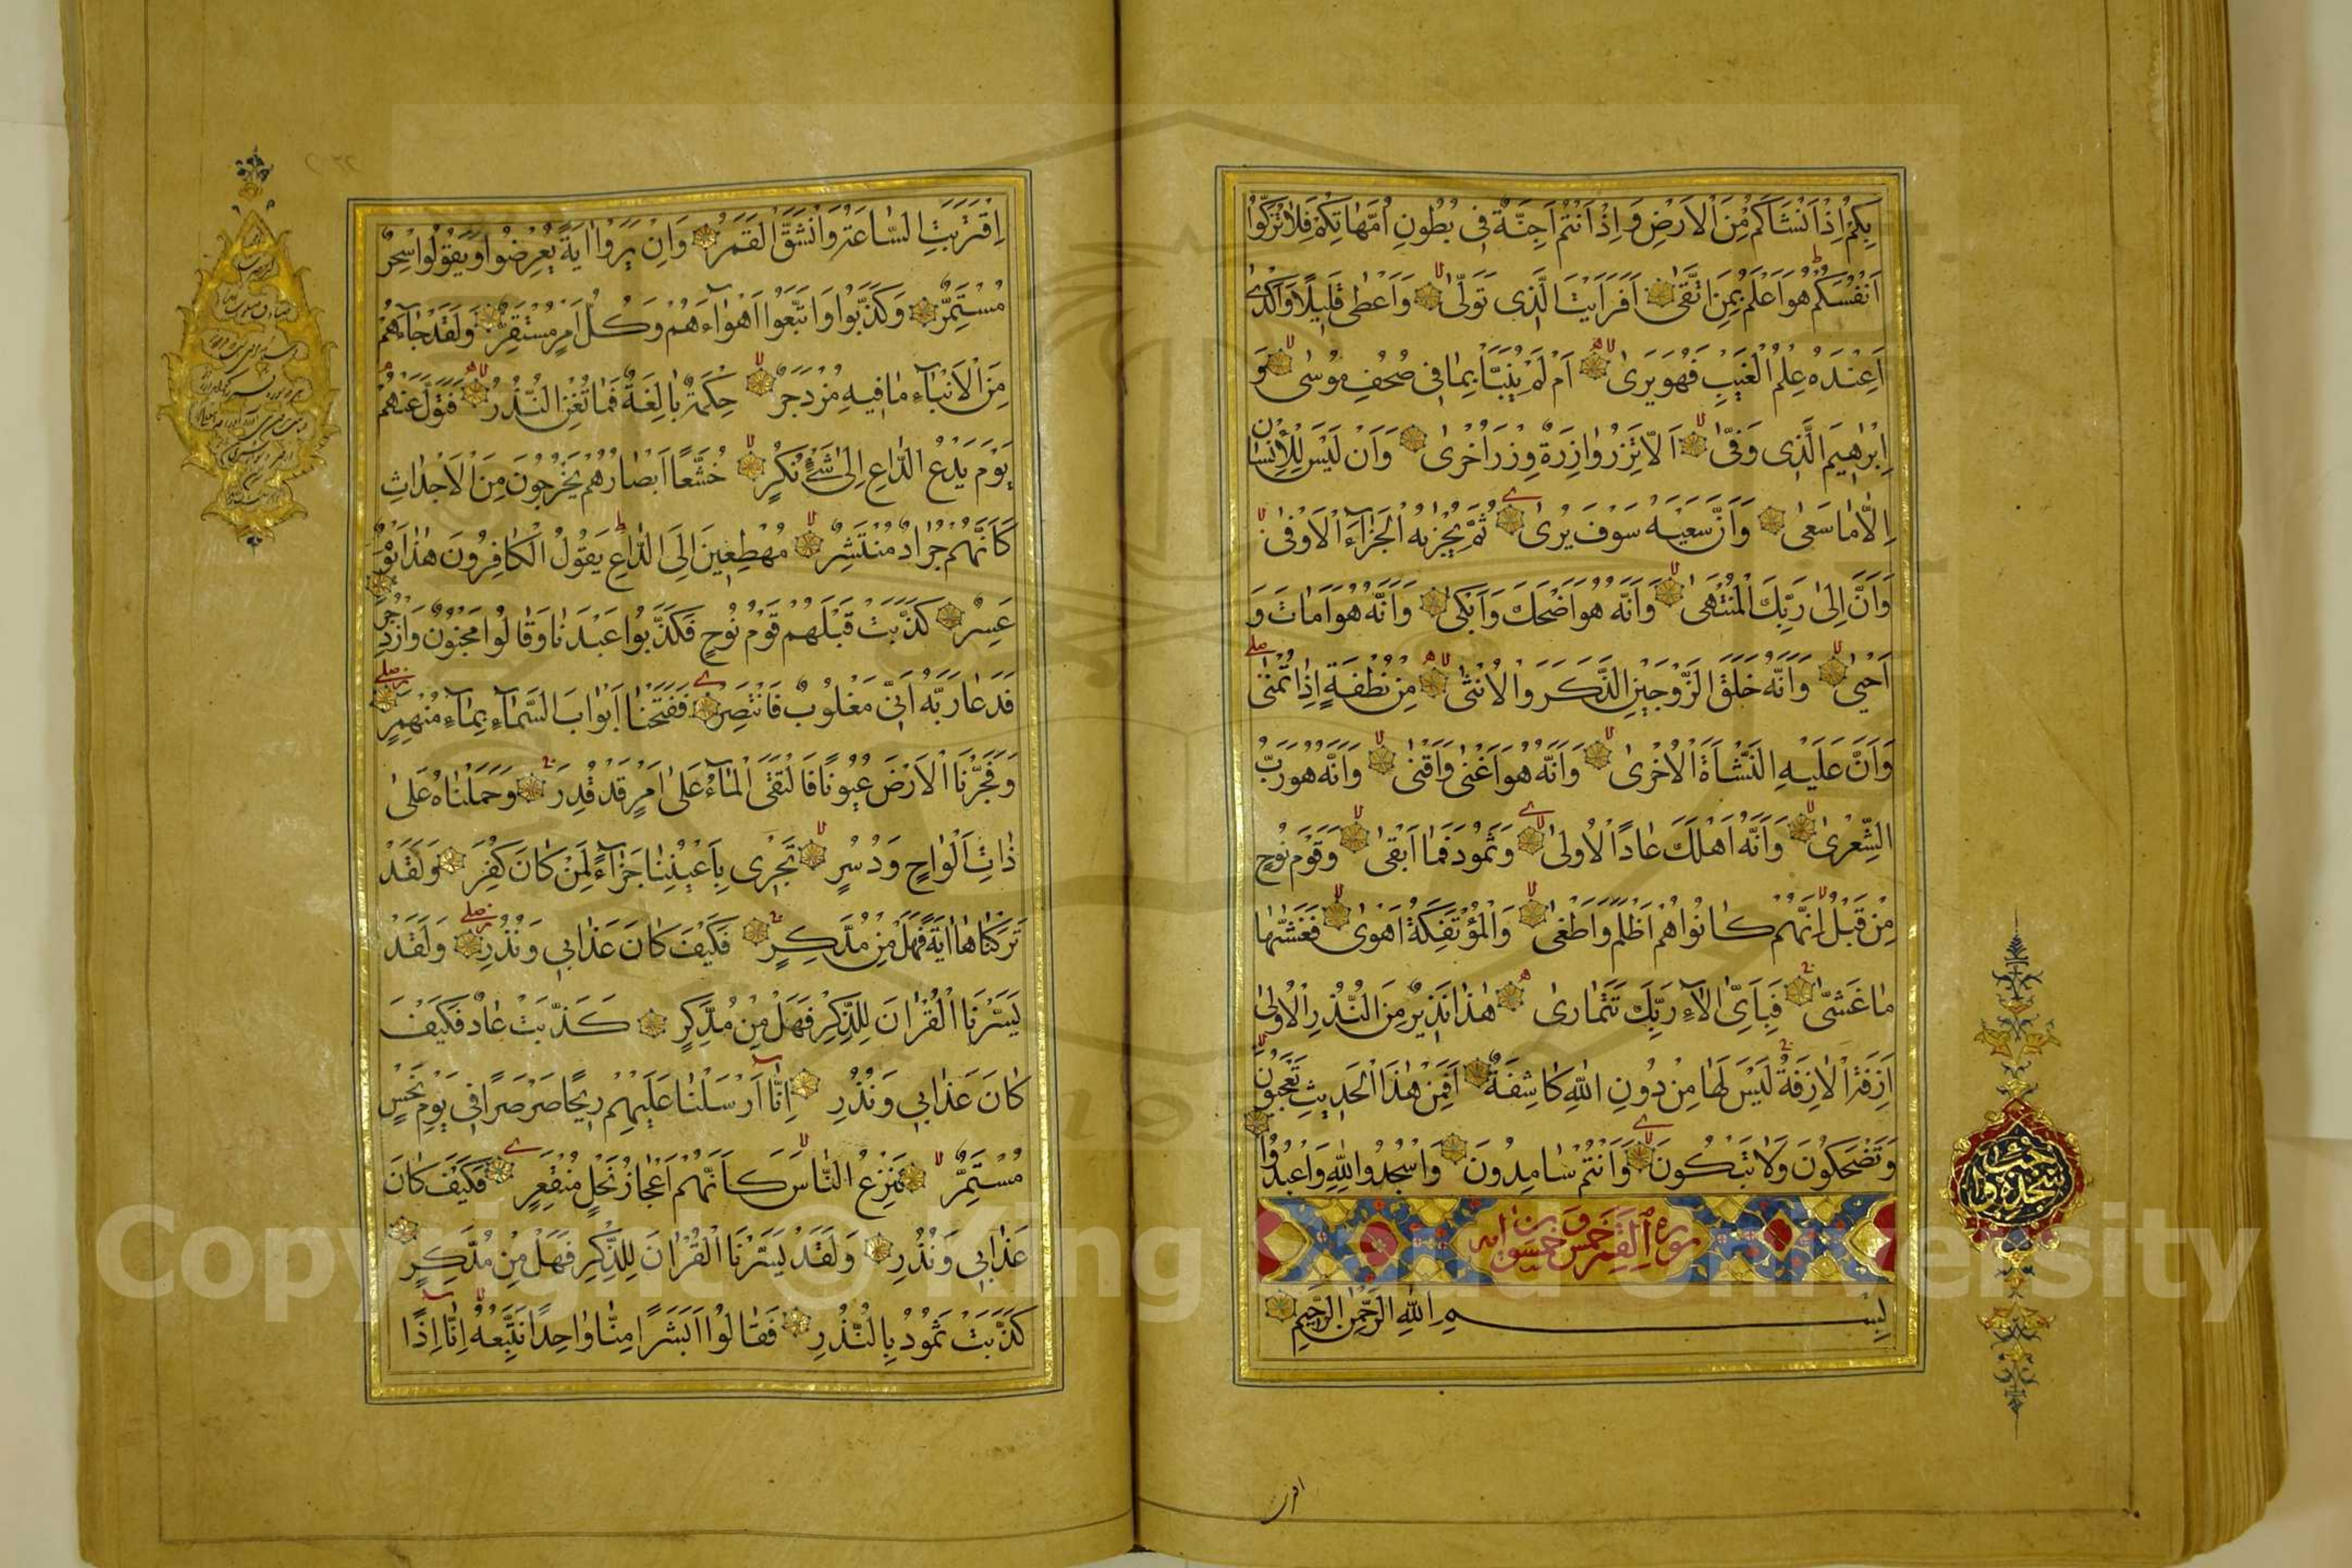 بِكُمْ اِذْ اَنْشَاَكُمْ مِنَ الْاَرْضِ وَ اِذْ اَنْتُمْ اَجِنَّةٌ فِى بُطُونِ اُمَّهَاتِكُمْ فَلَا تُزَكُّوا
اَنْفُسَكُمْ هُوَ اَعْلَمُ بِمَنِ اتَّقٰى اَفَرَاَيْتَ الَّذِى تَوَلّٰى وَاَعْطٰى قَلِيلًا وَاَكْدٰى
اَعِنْدَهُ عِلْمُ الْغَيْبِ فَهُوَ يَرٰى اَمْ لَمْ يُنَبَّأْ بِمَا فِى صُحُفِ مُوسٰى وَ
اِبْرٰهِيمَ الَّذِى وَفّٰى اَلَّا تَزِرُ وَازِرَةٌ وِزْرَ اُخْرٰى وَاَنْ لَيْسَ لِلْاِنْسَانِ
اِلَّا مَا سَعٰى وَاَنَّ سَعْيَهُ سَوْفَ يُرٰى ثُمَّ يُجْزٰيهُ الْجَزَاءَ الْاَوْفٰى
وَاَنَّ اِلٰى رَبِّكَ الْمُنْتَهٰى وَاَنَّهُ هُوَ اَضْحَكَ وَاَبْكٰى وَاَنَّهُ هُوَ اَمَاتَ وَ
اَحْيٰى وَاَنَّهُ خَلَقَ الزَّوْجَيْنِ الذَّكَرَ وَالْاُنْثٰى مِنْ نُطْفَةٍ اِذَا تُمْنٰى
وَاَنَّ عَلَيْهِ النَّشْاَةَ الْاُخْرٰى وَاَنَّهُ هُوَ اَغْنٰى وَاَقْنٰى وَاَنَّهُ هُوَ رَبُّ
الشِّعْرٰى وَاَنَّهُ اَهْلَكَ عَادًا الْاُولٰى وَثَمُودَ فَمَا اَبْقٰى وَقَوْمَ نُوحٍ
مِنْ قَبْلُ اِنَّهُمْ كَانُوا هُمْ اَظْلَمَ وَاَطْغٰى وَالْمُؤْتَفِكَةَ اَهْوٰى فَغَشّٰيهَا
مَا غَشّٰى فَبِاَىِّ اٰلَاءِ رَبِّكَ تَتَمَارٰى هٰذَا نَذِيرٌ مِنَ النُّذُرِ الْاُولٰى
اَزِفَتِ الْاٰزِفَةُ لَيْسَ لَهَا مِنْ دُونِ اللّٰهِ كَاشِفَةٌ اَفَمِنْ هٰذَا الْحَدِيثِ تَعْجَبُونَ
وَتَضْحَكُونَ وَلَا تَبْكُونَ وَاَنْتُمْ سَامِدُونَ وَاسْجُدُوا لِلّٰهِ وَاعْبُدُوا
سورة القمر خمس و خمسون اية
بِسْمِ اللّٰهِ الرَّحْمٰنِ الرَّحِيمِ
سجده
اقتربت
اِقْتَرَبَتِ السَّاعَةُ وَانْشَقَّ الْقَمَرُ وَاِنْ يَرَوْا اٰيَةً يُعْرِضُوا وَيَقُولُوا سِحْرٌ
مُسْتَمِرٌّ وَكَذَّبُوا وَاتَّبَعُوا اَهْوَاءَهُمْ وَكُلُّ اَمْرٍ مُسْتَقِرٌّ وَلَقَدْ جَاءَهُمْ
مِنَ الْاَنْبَاءِ مَا فِيهِ مُزْدَجَرٌ حِكْمَةٌ بَالِغَةٌ فَمَا تُغْنِ النُّذُرُ فَتَوَلَّ عَنْهُمْ
يَوْمَ يَدْعُ الدَّاعِ اِلٰى شَىْءٍ نُكُرٍ خُشَّعًا اَبْصَارُهُمْ يَخْرُجُونَ مِنَ الْاَجْدَاثِ
كَاَنَّهُمْ جَرَادٌ مُنْتَشِرٌ مُهْطِعِينَ اِلَى الدَّاعِ يَقُولُ الْكَافِرُونَ هٰذَا يَوْمٌ
عَسِرٌ كَذَّبَتْ قَبْلَهُمْ قَوْمُ نُوحٍ فَكَذَّبُوا عَبْدَنَا وَقَالُوا مَجْنُونٌ وَازْدُجِرَ
فَدَعَا رَبَّهُ اَنِّى مَغْلُوبٌ فَانْتَصِرْ فَفَتَحْنَا اَبْوَابَ السَّمَاءِ بِمَاءٍ مُنْهَمِرٍ
وَفَجَّرْنَا الْاَرْضَ عُيُونًا فَالْتَقَى الْمَاءُ عَلٰى اَمْرٍ قَدْ قُدِرَ وَحَمَلْنَاهُ عَلٰى
ذَاتِ اَلْوَاحٍ وَدُسُرٍ تَجْرِى بِاَعْيُنِنَا جَزَاءً لِمَنْ كَانَ كُفِرَ وَلَقَدْ
تَرَكْنَاهَا اٰيَةً فَهَلْ مِنْ مُدَّكِرٍ فَكَيْفَ كَانَ عَذَابِى وَنُذُرِ وَلَقَدْ
يَسَّرْنَا الْقُرْاٰنَ لِلذِّكْرِ فَهَلْ مِنْ مُدَّكِرٍ كَذَّبَتْ عَادٌ فَكَيْفَ
كَانَ عَذَابِى وَنُذُرِ اِنَّا اَرْسَلْنَا عَلَيْهِمْ رِيحًا صَرْصَرًا فِى يَوْمِ نَحْسٍ
مُسْتَمِرٍّ تَنْزِعُ النَّاسَ كَاَنَّهُمْ اَعْجَازُ نَخْلٍ مُنْقَعِرٍ فَكَيْفَ كَانَ
عَذَابِى وَنُذُرِ وَلَقَدْ يَسَّرْنَا الْقُرْاٰنَ لِلذِّكْرِ فَهَلْ مِنْ مُدَّكِرٍ
كَذَّبَتْ ثَمُودُ بِالنُّذُرِ فَقَالُوا اَبَشَرًا مِنَّا وَاحِدًا نَتَّبِعُهُ اِنَّا اِذًا
Copyright © King Saud University